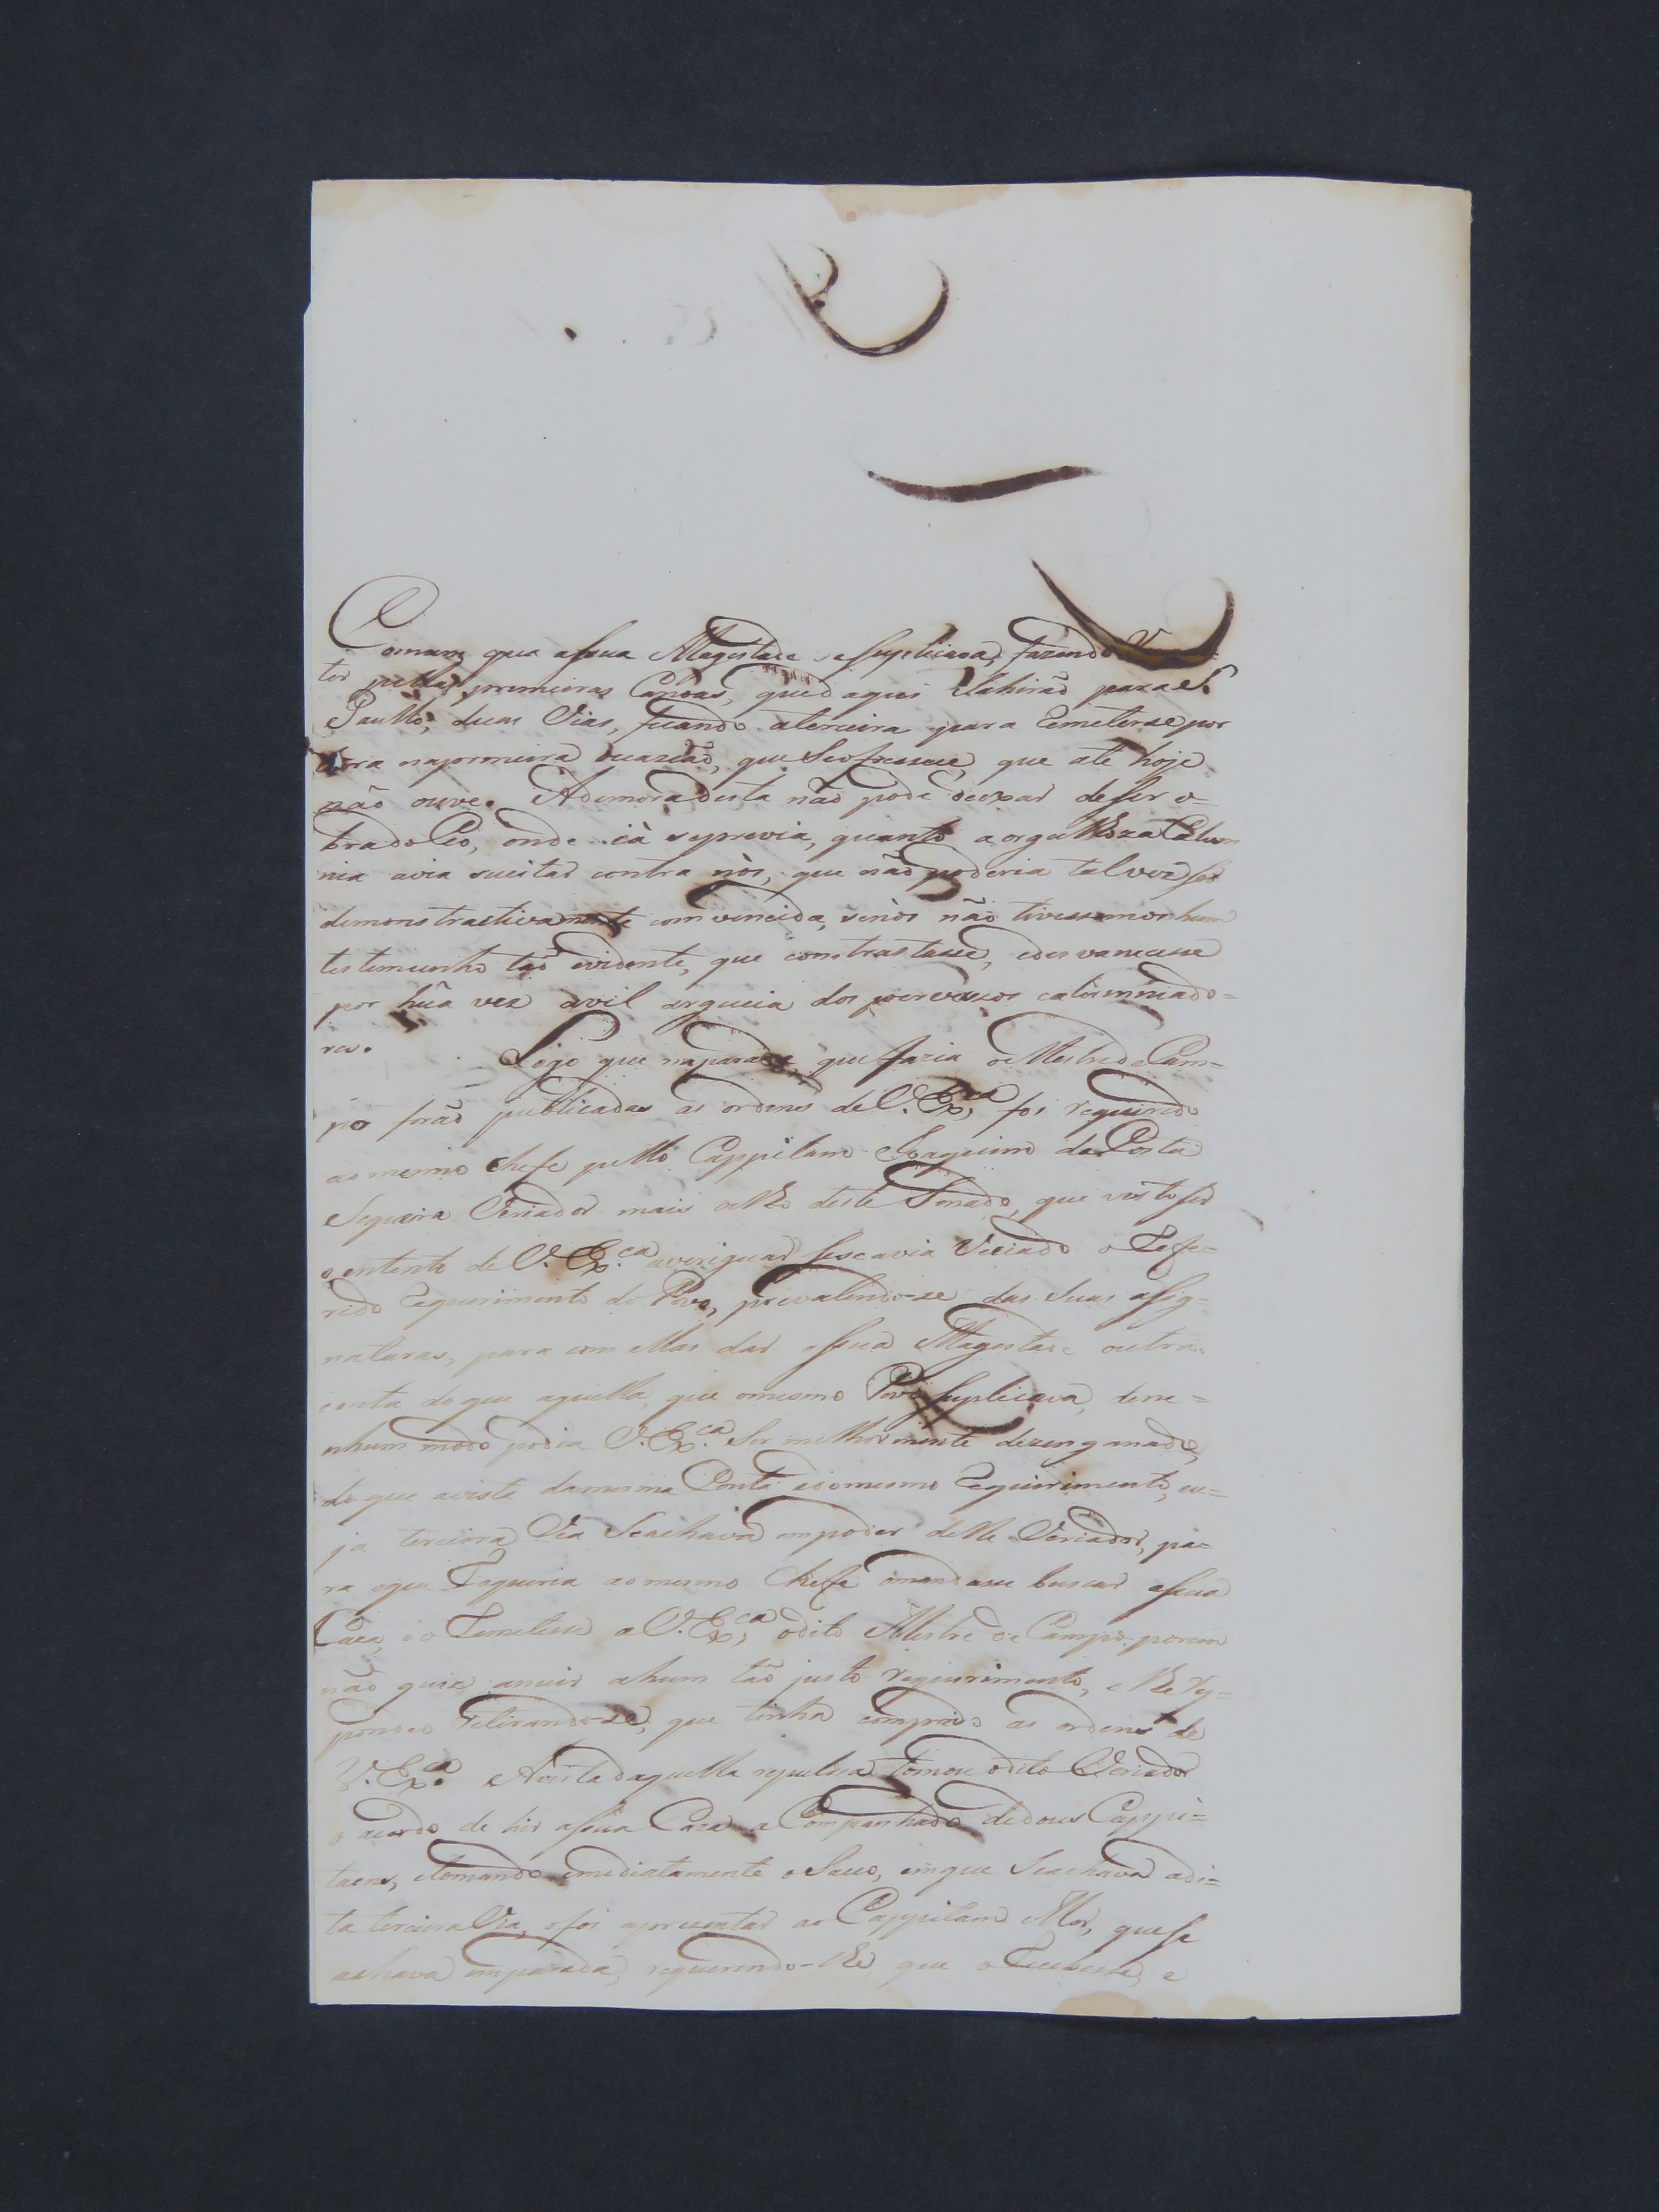 Comum que a Sua Magestade se suplicava, fazendo
tos pellas primeiras Canoas, que d aqui Sahirão para S.
Paullo, duas Vias, ficando aterceira para Remeterse por
terra naprimeira ocazião, que Seofresece, que até hoje
não ouve. Ademora desta não pode deixar deser o-
bra do Ceo, onde ià seprevia, quanto aorgulhoza Calum
nia avia sucitar contra nòs, que não poderia talvez ser
demonstractivamente comvencida, senòs não tivessemos hum
testemunho tão evidente, que contrastasse, edesvanecesse
por hũa vez avil argucia dos perverssos calùmniado=
res.
Logo que naparada, que fazia o Mestre de Cam=
po forão publicadas as ordens de V. Ex.ca foi requirido
ao mesmo chefe pello Cappitam Joaquim da Costa
Sequeira Veriador mais velho deste Senado, que visto ser
o entento de V. Ex.ca averiguar sese avia Viciado o Refe=
rido Requerimento do Povo, prevalendo-se das suas asig=
naturas, para com ellas dar a Sua Magestade outra
conta do que aquella, que omesmo Povo suplicava, dene=
nhum modo podia V. Ex.ca Ser melhormente dezenganado,
do que avista damesma Conta edomesmo Requerimento, cu=
ja terceira Via Seachava empoder delle Veriador, pa=
ra oque Requeria aomesmo Chefe omandasse buscar asua
Caza, eo Remetesse a V. Ex.ca, odito Mestre de Campo porem
não quiz anuir ahum tão justo requirimento, e lhe res=
pondeo retirando-se, que tinha comprido as ordens de
V. Ex.a Avista daquella repulssa tomou odito Veriador
o acordo de hir asua Caza a Companhado dedous Cappi=
taens, etomando imediatamente o Saco, emque Seachava adi=
ta terceira Via, ofoi aprezentar ao Cappitam Mor, que se
achava emparada, requerendo-lhe que o Recebesse, e